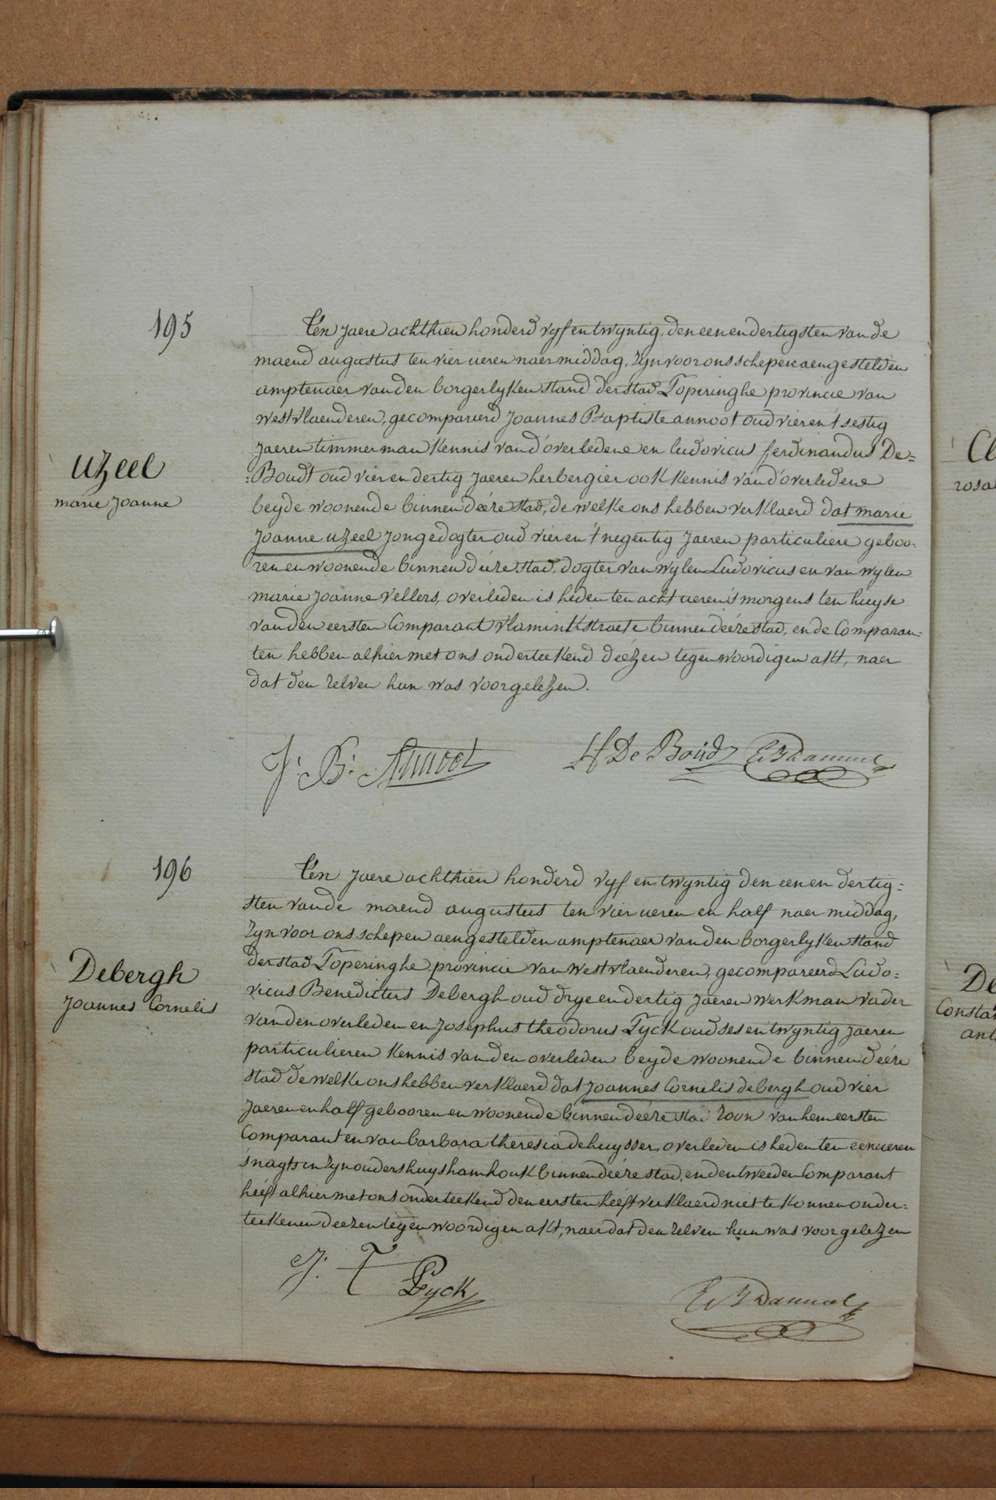 195
Ten jaere achthien honderd vyf en twyntig, den eenendertigsten van de
maend augustus ten vier ueren naermiddag, Zyn voor ons schepen aengestelden
amptenaer van den borgerlyken stand der stad Poperinghe provincie van
westvlaenderen, gecompareerd Joannes Baptiste annoot oud vier en t'sestig
Jaeren timmerman Kennis van d'overledene en Ludovicus ferdinandus De=
Uzeel
:Boudt oud vier en dertig Jaeren herbergier ook Kennis van d'overledene
marie Joanne
beyde woonende binnen deéze stad, de welke ons hebben verklaerd dat marie
Joanne uzeel Jonge dogter oud vier en t'negentig Jaeren particuliere geboo-
ren en woonende binnen deéze stad dogter van wylen Ludovicus en van wylen
marie Joanne Vellers, overleden is heden ten acht ueren s'morgens ten huyse
van den eersten Comparant vlaminkstraete binnen deeze stad, en de Comparan-
ten hebben alhier met ons onderteekend deezen tegenwoordigen akt, naer
dat den zelven hun was voorgelezen.
J: B: Annoot
LF De Boudt
196
Ten Jaere achthien honderd vyf en twyntig den een en dertig=
sten van de maend augustus ten vier ueren en half naer middag,
Zyn voor ons schepen aengestelden amptenaer van den borgerlyken stand
Debergh
der stad Poperinghe provincie van westvlaenderen, gecompareerd Ludo=
Joannes Cornelis
vicus Benedictus Debergh oud drye en dertig Jaeren werkman vader
van den overleden en Josephus theodorus Pyck oud ses en twyntig Jaeren
particulieren Kennis van den overleden beyde woonende binnen deéze
stad de welke ons hebben verklaerd dat Joannes Cornelis debergh oud vier
Jaeren en half gebooren en woonende binnen deéze stad zoon van hem eersten
Comparant en van barbara theresia dehuysser, overleden is heden ten een ueren
s'nagts in Zyn ouders huys hamhouk binnen deéze stad, en den tweeden Comparant
heéft alhier met ons onderteekend den eersten heéft verklaerd niet te konnen onder=
teekenen deezen tegenwoordigen akt, naer dat den zelven hun was voorgelezen
J. T Pyck
Cl
rosa
De
Consta
ant